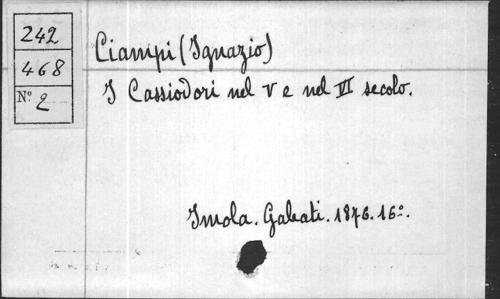 242
468
Nº 2
Ciampi (Ignazio)
I Cassiodori nel V e nel VI secolo.
Imola. Galeati. 1876. 16º.